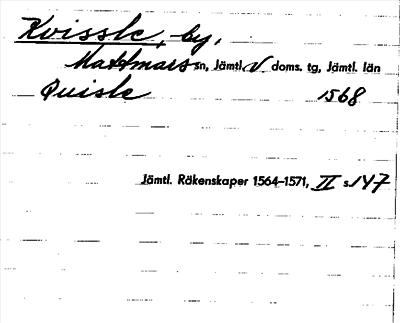 Kvissle, by,
Mattmars sn, Jämtl. V doms. tg, Jämtl. län
Quisle 1568
Jämtl. Räkenskaper 1564–1571, II s. 147